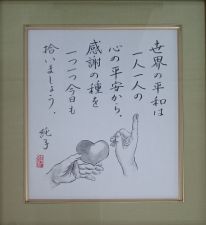 世界の平和は
一人一人の
心の平安から、
感謝の種を
一つ一つ今日も
拾いましょう。
純子